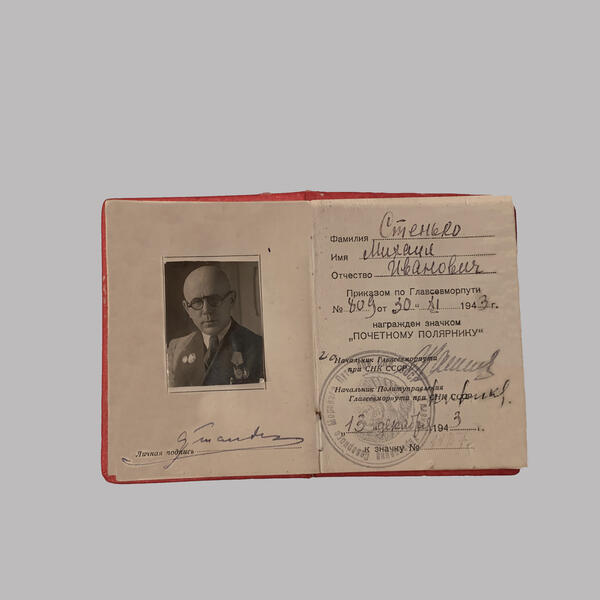 Личная подпись
Фамилия Стенько
Имя Михаил
Отчество Иванович
Приказом по Главсевморпути
№ 809 от 30 "XI 1943 г.
награжден значком
„ПОЧЕТНОМУ ПОЛЯРНИКУ"
Начальник Главсевморпути
при СНК СССР
Начальник Политуправления
Главсевморпути при СНК СССР
„13 декабря 1943 г.
к значку №